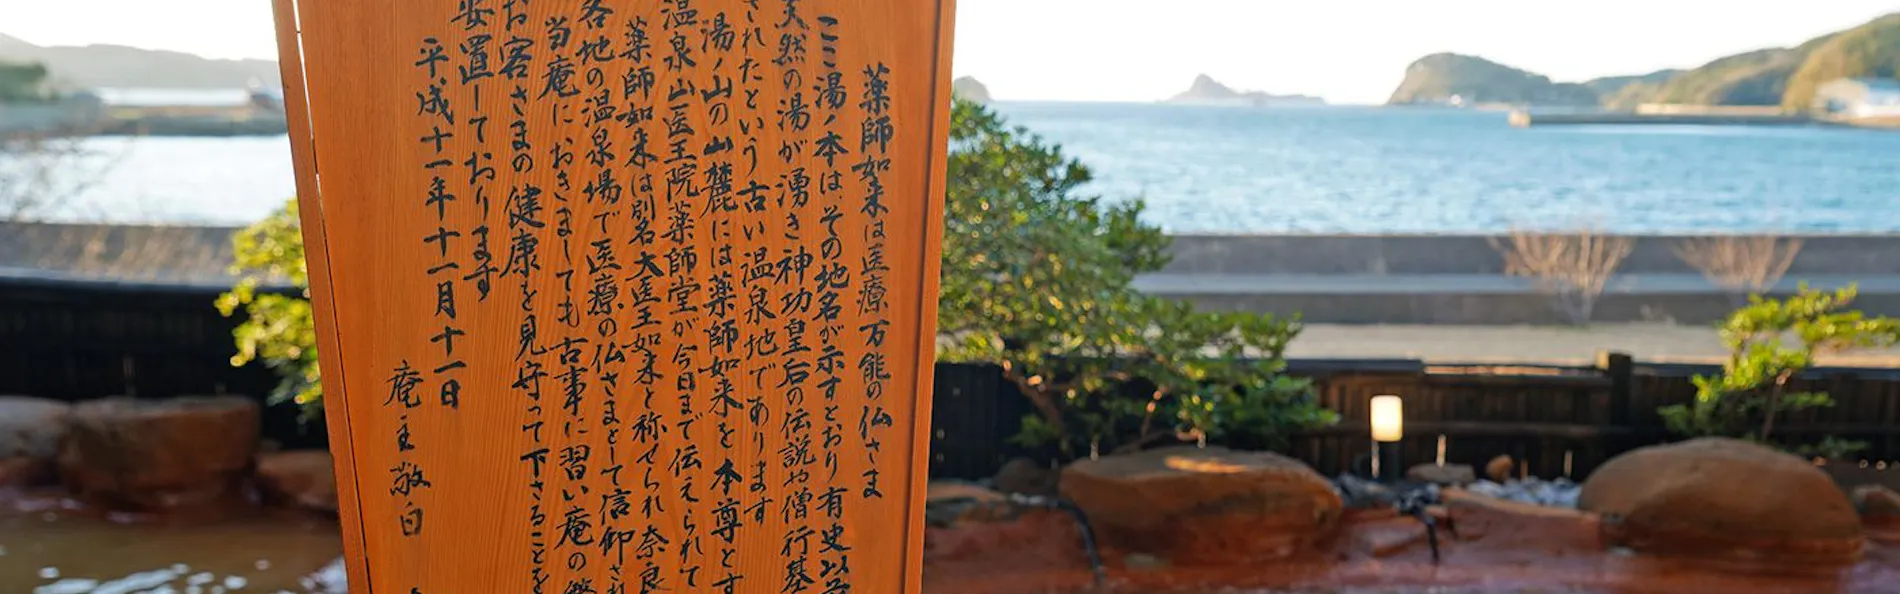 薬師如来は医療万能の仏さま
ここ湯ノ本は、その地名が示すとおり有史以前
天然の湯が湧き神功皇后の伝説や僧行基
されたという古い温泉地であります
湯ノ山の山麓には薬師如来を本尊とす
温泉山医王院薬師堂が今日まで伝えられて
薬師如来は別名大医王如来と称せられ奈良
各地の温泉場で医療の仏さまとして信仰され
当庵におきましても古事に習い庵の
お客さまの健康を見守って下さることを
安置しております
平成十一年十一月十一日
庵主敬白